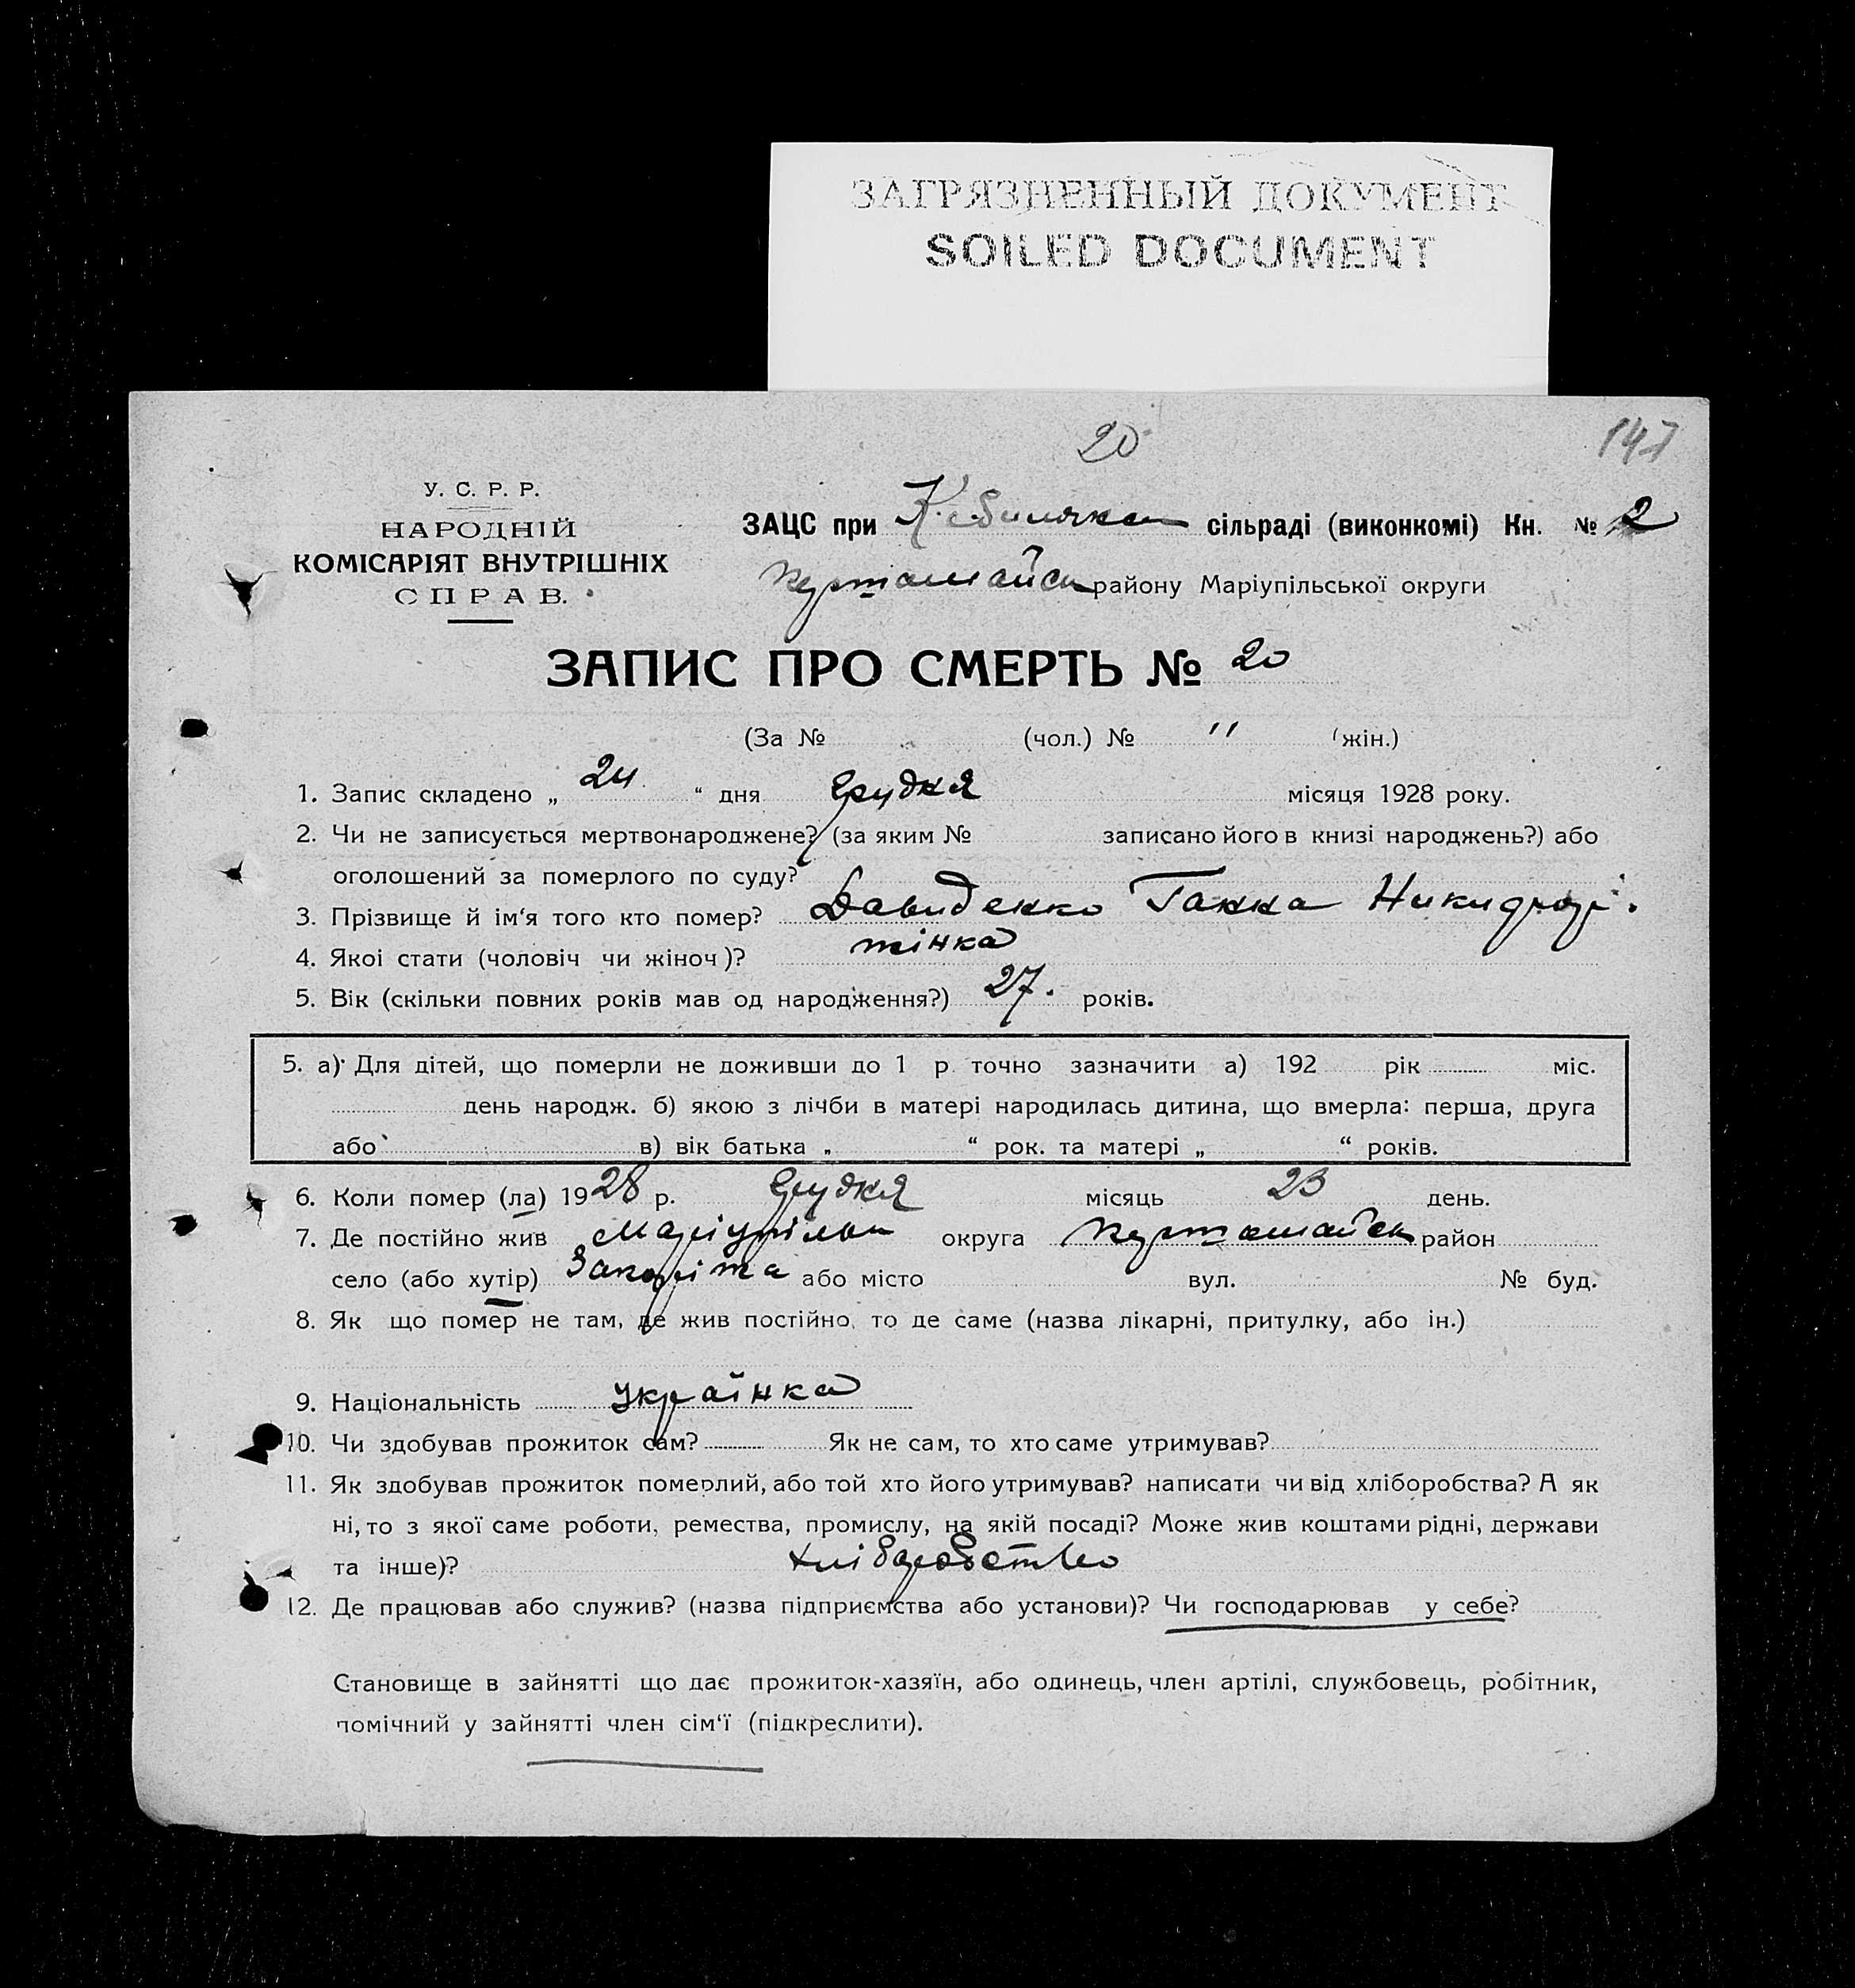 ЗАГРЯЗНЕННЫЙ ДОКУМЕНТ
SOILED DOCUMENT
20
147
У. С. Р. Р.
НАРОДНІЙ
КОМІСАРІЯТ ВНУТРІШНІХ
СПРАВ.
ЗАЦС при сільраді (виконкомі) Кн. № 2
району Маріупільської округи
ЗАПИС ПРО СМЕРТЬ № 20
(За № (чол.) № 11 (жін.)
1. Запис складено „ 24 “ дня Грудня місяця 1928 року.
2. Чи не записується мертвонароджене? (за яким № записано його в книзі народжень?) або
оголошений за померлого по суду?
3. Прізвище й ім‘я того кто помер? Давиденко Ганна
4. Якоі стати (чоловіч чи жіноч)? жінка
5. Вік (скільки повних років мав од народження?) 27. років.
5. а) Для дітей, що померли не доживши до 1 р. точно зазначити а) 192 рік міс.
день народж. б) якою з лічби в матері народилась дитина, що вмерла: перша, друга
або в) вік батька „ “ рок. та матері „ “ років.
6. Коли помер (ла) 1928 р. Грудня місяць 23 день.
7. Де постійно жив Маріупільськ округа район
село (або хутір) або місто вул. № буд.
8. Як що помер не там, де жив постійно, то де саме (назва лікарні, притулку, або ін.)
9. Національність Українка
10. Чи здобував прожиток сам? Як не сам, то хто саме утримував?
11. Як здобував прожиток померлий, або той хто його утримував? написати чи від хліборобства? А як
ні, то з якої саме роботи, ремества, промислу, на якій посаді? Може жив коштами рідні, держави
та інше)? хліборобство
12. Де працював або служив? (назва підприємства або установи)? Чи господарював у себе?
Становище в зайнятті що дає прожиток-хазяїн, або одинець, член артілі, службовець, робітник,
помічний у зайнятті член сім‘ї (підкреслити).